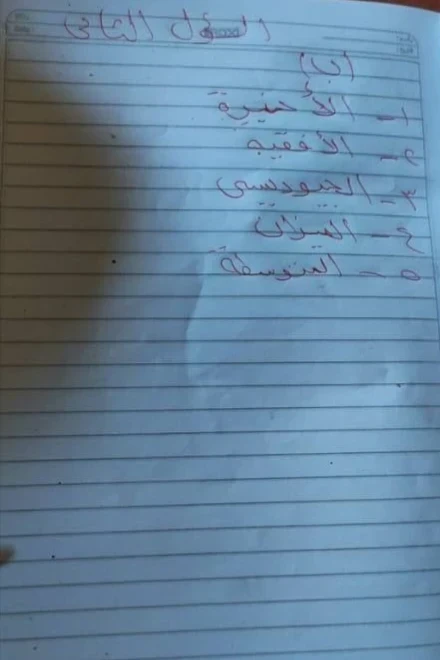 السؤال الثاني
(ب)
١ - الأخيرة
٢ - الأفقية
٣ - الجيوديسي
٤ - الميزان
٥ - المتوسطة